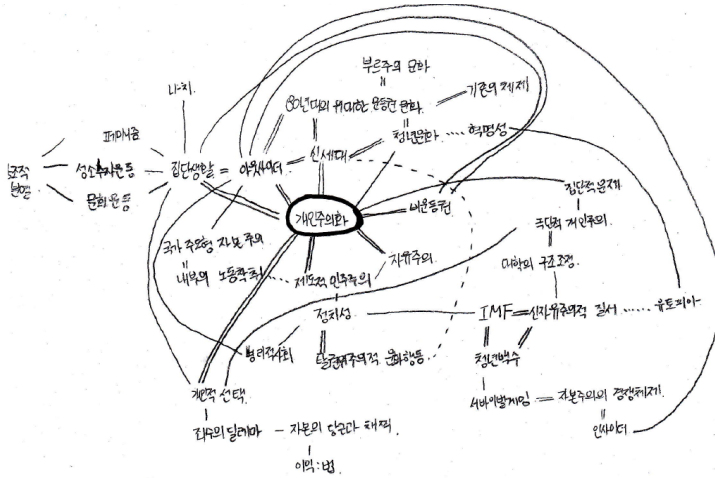 부르주의 문화
나치
80년대의 위대한 운동권 문화
기존의 체제
페미니즘
청년문화
혁명성
조직
분열
성소수자운동
집단생활
아웃사이더
신세대
문화운동
집단적문제
개인주의화
비운동권
극단적 개인주의
국가 주도형 자본주의
내부의 노동착취
자유주의
대학의 구조조정
제도적 민주주의
정치성
IMF
신자유주의적 질서
유토피아
병리적사회
탈권위주의적 문화행동
청년백수
개인적 선택
서바이벌게임
자본주의의 경쟁체제
죄수의 딜레마
자본의 당근과 채찍
인사이더
이익:법